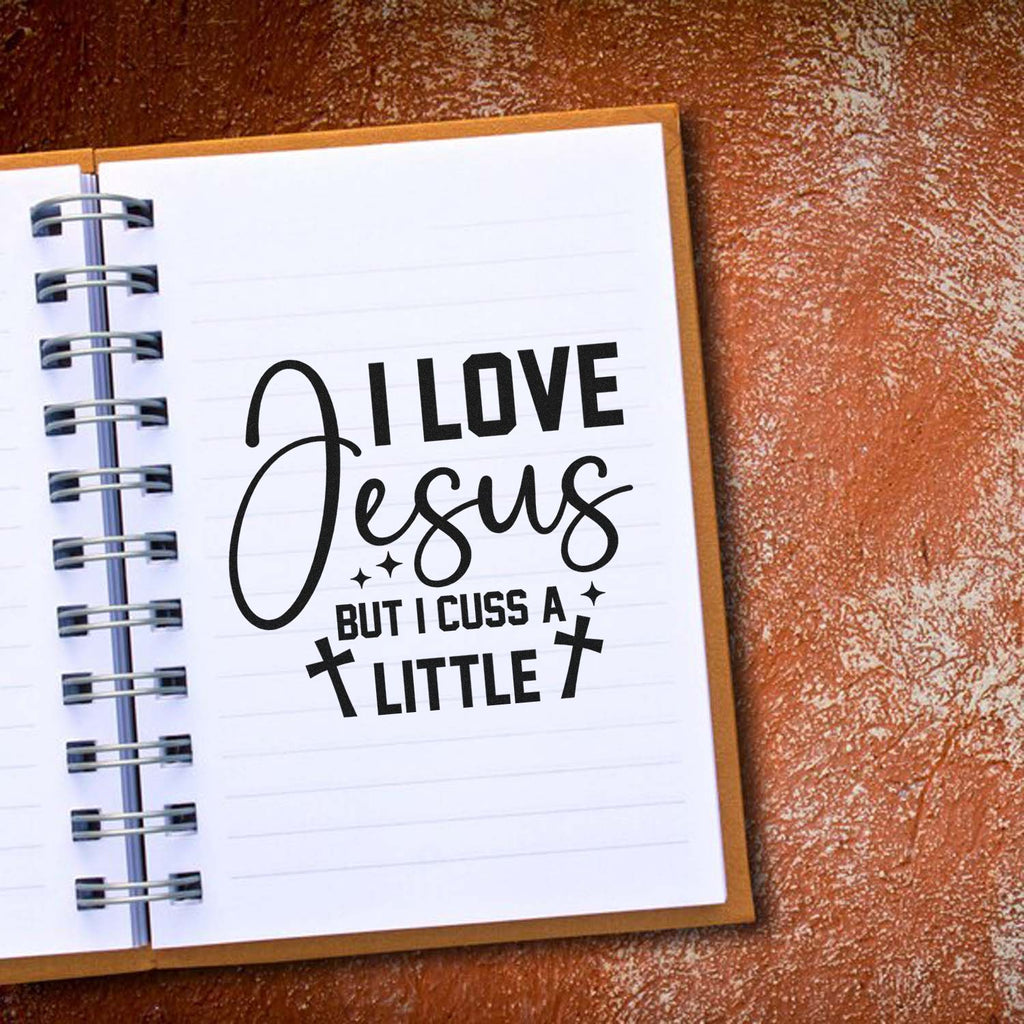 I LOVE
Jesus
BUT I CUSS A
LITTLE